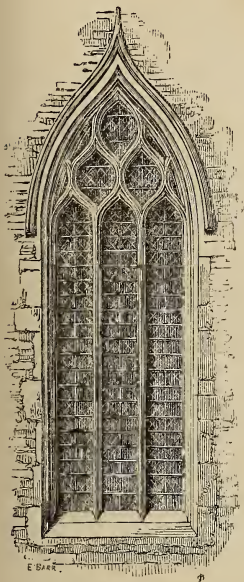 E. BARR.